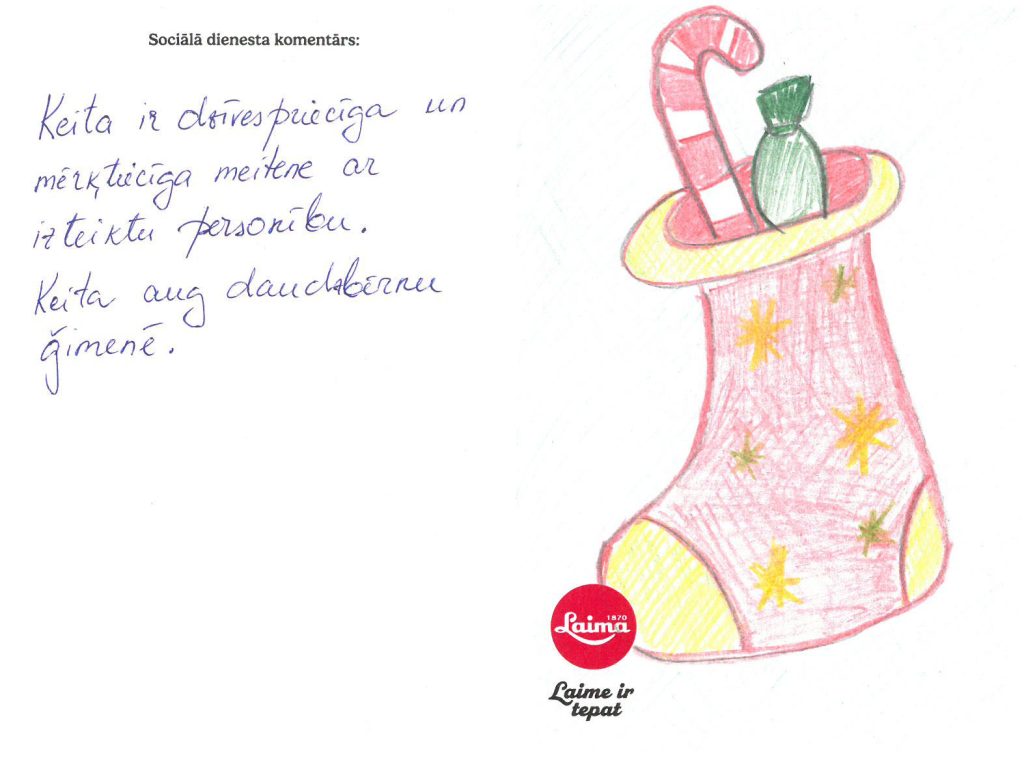 Sociālā dienesta komentārs:
Keita ir dzīvespriecīga un
mērķtiecīga meitene ar
izteiktu personību.
Keita aug daudzbērnu
ģimenē.
1870
Laima
Laime ir
tepat